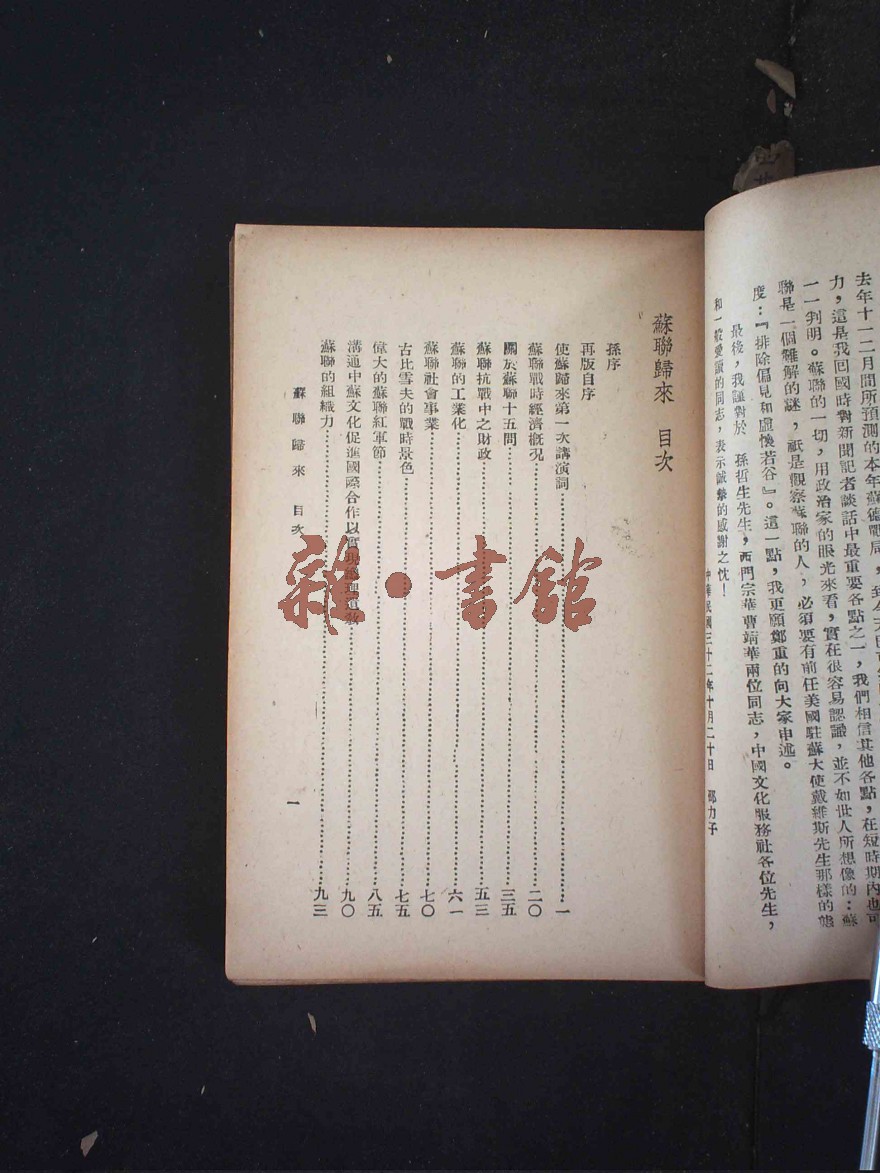 力，這是我回國時對新聞記者談話中最重要各點之一，我們相信其他各點，在短時期內也可
一一判明。蘇聯的一切，用政治家的眼光來看，實在很容易認識，並不如世人所想像的：蘇
聯是一個難解的謎，祇是觀察蘇聯的人，必須要有前任美國駐蘇大使戴維斯先生那樣的態
度：『排除偏見和虛懷若谷』。這一點，我更願鄭重的向大家申述。
最後，我謹對於　孫哲生先生，西門宗華曹靖華兩位同志，中國文化服務社各位先生，
和一般愛讀的同志，表示誠摯的感謝之忱！
中華民國三十二年十月二十日　邵力子
蘇聯歸來　目次
孫序
再版自序
使蘇歸來第一次講演詞……一
蘇聯戰時經濟概況……二〇
關於蘇聯十五問……三五
蘇聯抗戰中之財政……五三
蘇聯的工業化……六一
蘇聯社會事業……七〇
古比雪夫的戰時景色……七五
偉大的蘇聯紅軍節……八五
溝通中蘇文化促進國際合作以實現……九〇
蘇聯的組織力……九三
蘇聯歸來　目次
一
雜·書館